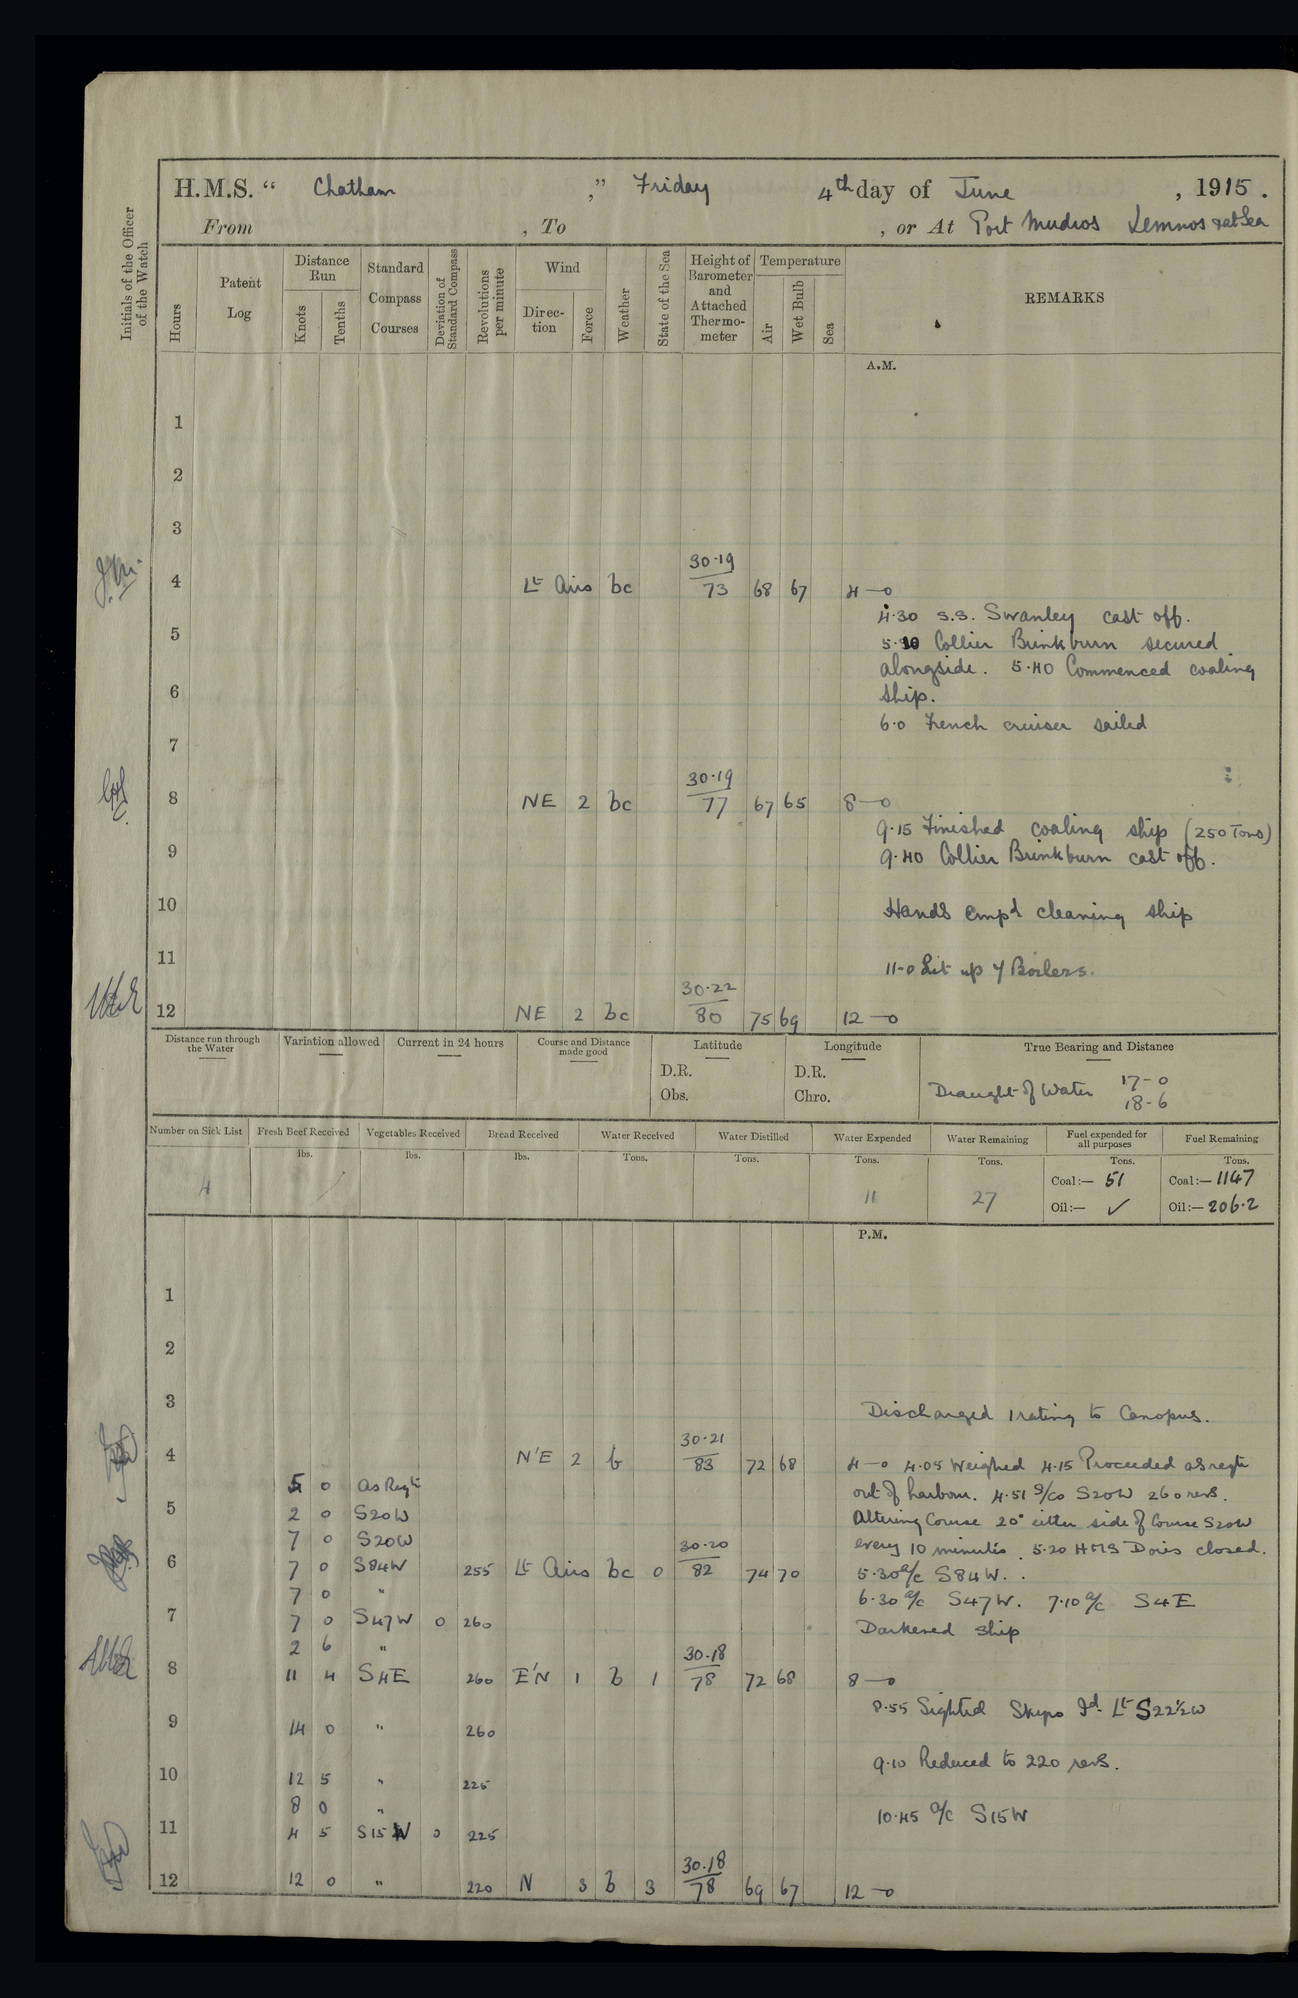 H.M.S. “ Chatham ,” Friday 4th day of June , 1915 .
From , To , or At Port Mudros Lemnos & at Sea
Initials of the Officer of the Watch
Hours
Patent Log
Distance Run
Knots
Tenths
Standard Compass Courses
Deviation of Standard Compass
Revolutions per minute
Wind
Direc-tion
Force
Weather
State of the Sea
Height of Barometer and Attached Thermo-meter
Temperature
Air
Wet Bulb
Sea
REMARKS
A.M.
1
2
3
30.19
4 Lt Airs bc 73 68 67 4—0
4.30 S.S. Swanley cast off.
5 Collier Brinkburn secured
alongside. 5.40 Commenced coaling
6 ship.
6.0 French cruiser sailed
7
30.19
8 NE 2 bc 77 67 65 8—0
9.15 Finished coaling ship (250 Tons)
9 9.40 Collier Brinkburn cast off.
10 Hands emp'd cleaning ship
11 11-0 Lit up Y Boilers.
30.22
12 NE 2 bc 80 75 69 12—0
Distance run through the Water
Variation allowed
Current in 24 hours
Course and Distance made good
Latitude
D.R.
Obs.
Longitude
D.R.
Chro.
True Bearing and Distance
Draught of Water 17-0
18-6
Number on Sick List Fresh Beef Received Vegetables Received Bread Received Water Received Water Distilled Water Expended Water Remaining Fuel expended for all purposes Fuel Remaining
lbs. lbs. lbs. Tons. Tons. Tons. Tons. Tons. Tons.
4 11 27 Coal:— 51 Coal:— 1147
Oil:— ✓ Oil:— 206.2
P.M.
1
2
3 Discharged 1 rating to Canopus.
30.21
4 N'E 2 b 83 72 68 4—0 4.05 Weighed 4.15 Proceeded as reqte
5 0 As Reqte out of harbour. 4.51 a/co S20W 260 revs.
5 2 0 S20W Altering Course 20° either side of Course S20W
7 0 S20W 30.20 every 10 minutes. 5.20 HMS Doris closed.
6 7 0 S84W 255 Lt Airs bc 0 82 74 70 5.30 a/c S84W.
7 0 " 6.30 a/c S47W. 7.10 a/c S4E
7 7 0 S47W 0 260 Darkened ship
2 6 " 30.18
8 11 4 S4E 260 E'N 1 b 1 78 72 68 8—0
8.55 Sighted Skyro Id. Lt S22½W
9 14 0 " 260
9.10 Reduced to 220 revs.
10 12 5 " 225
8 0 " 10.45 a/c S15W
11 4 5 S15W 0 225
30.18
12 12 0 " 220 N 3 b 3 78 69 67 12—0